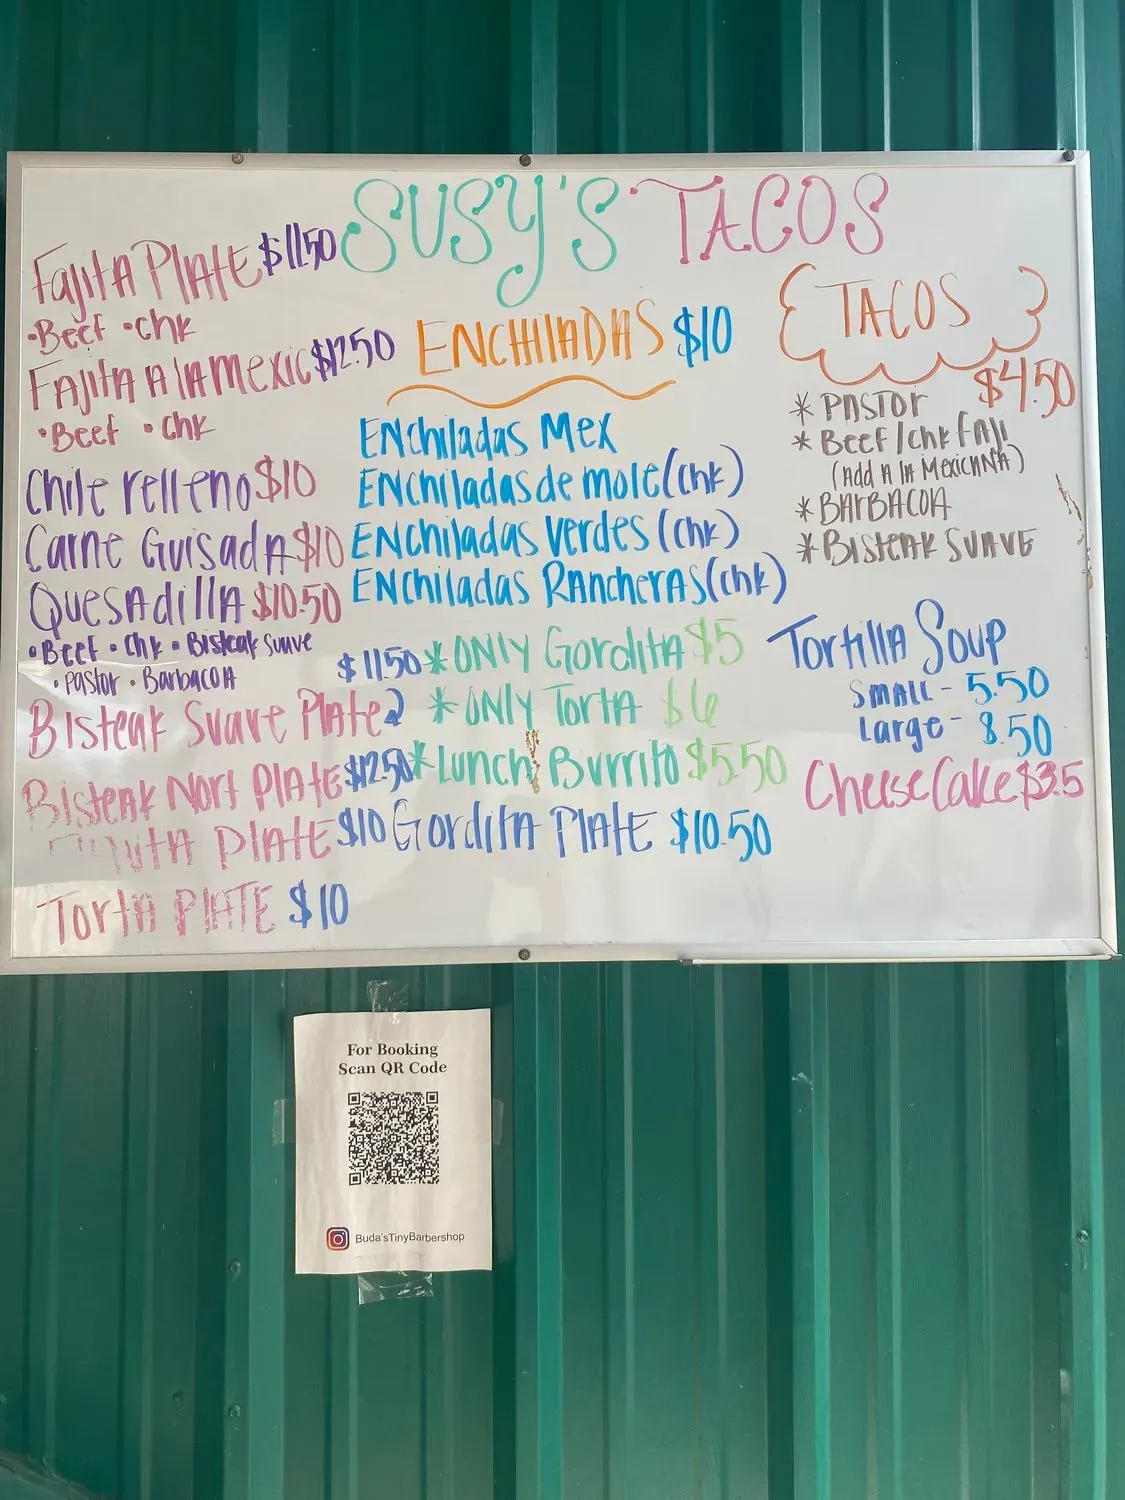 SUSY'S TACOS
Fajita Plate $11.50
•Beef •chk
Fajita A la Mexic $12.50
•Beef •chk
Chile relleno $10
Carne Guisada $10
Quesadilla $10.50
•Beef •Chk •Bisteak Suave
•Pastor •Barbacoa
Bisteak Suave Plate $11.50
Bisteak Nort Plate $12.50
Plate $10
Torta Plate $10
ENCHILADAS $10
Enchiladas Mex
Enchiladas de mole (chk)
Enchiladas Verdes (chk)
Enchiladas Rancheras (chk)
*ONLY Gordita $5
*ONLY Torta $6
*Lunch Burrito $5.50
Gordita Plate $10.50
TACOS
$4.50
* PASTOR
* Beef/chk FAJI
(Add A la Mexicana)
* BARBACOA
* BISTEAK SUAVE
Tortilla Soup
Small - 5.50
Large - 8.50
Cheese Cake $3.5
For Booking
Scan QR Code
Buda'sTinyBarbershop